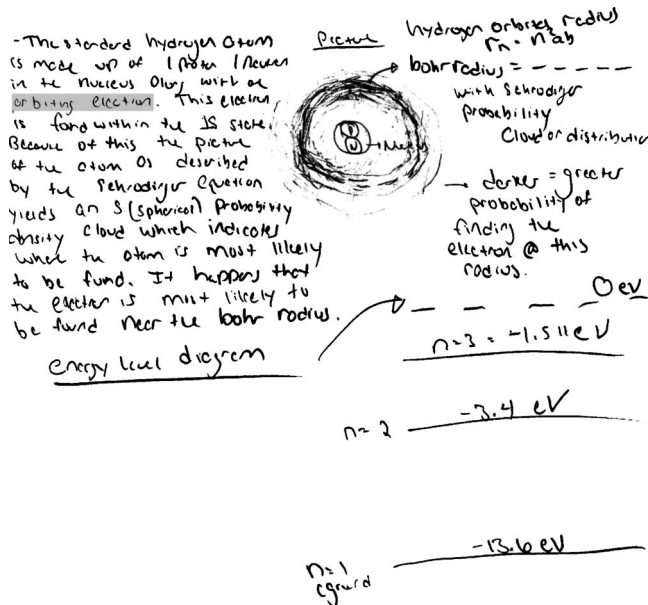 - The standard hydrogen atom
is made up of 1 proton 1 neutron
in the nucleus along with an
orbiting electron. This electron
is fond within the 1S state.
Because of this the picture
of the atom as described
by the Schrodiger equation
yields an S (spherical) probability
density cloud which indicates
what the atom is most likely
to be fund. It happens that
the electron is most likely to
be found near the bohr radius.
Picture
hydrogen orbites radius
rn = n²ab
bohr radius = - - - - - -
with Schrodiger
probability
cloud or distribution
→ darker = greater
probability of
finding the
electron @ this
radius.
energy level diagram
0 eV
n=3 = -1.511 eV
n=2 -3.4 eV
n=1 -13.6 eV